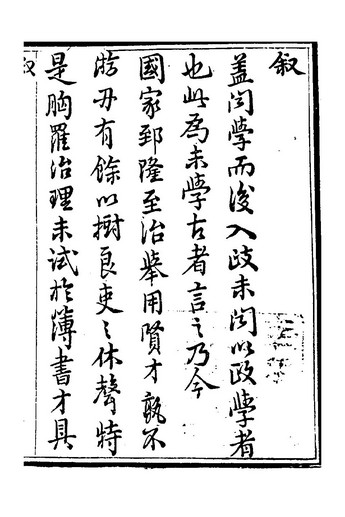 叙
盖聞學而後入政未聞以政學者
也此為未學古者言之乃今
國家郅隆至治舉用賢才孰不
游刃有餘以樹良吏之休聲特
是胸羅治理未試於簿書才具